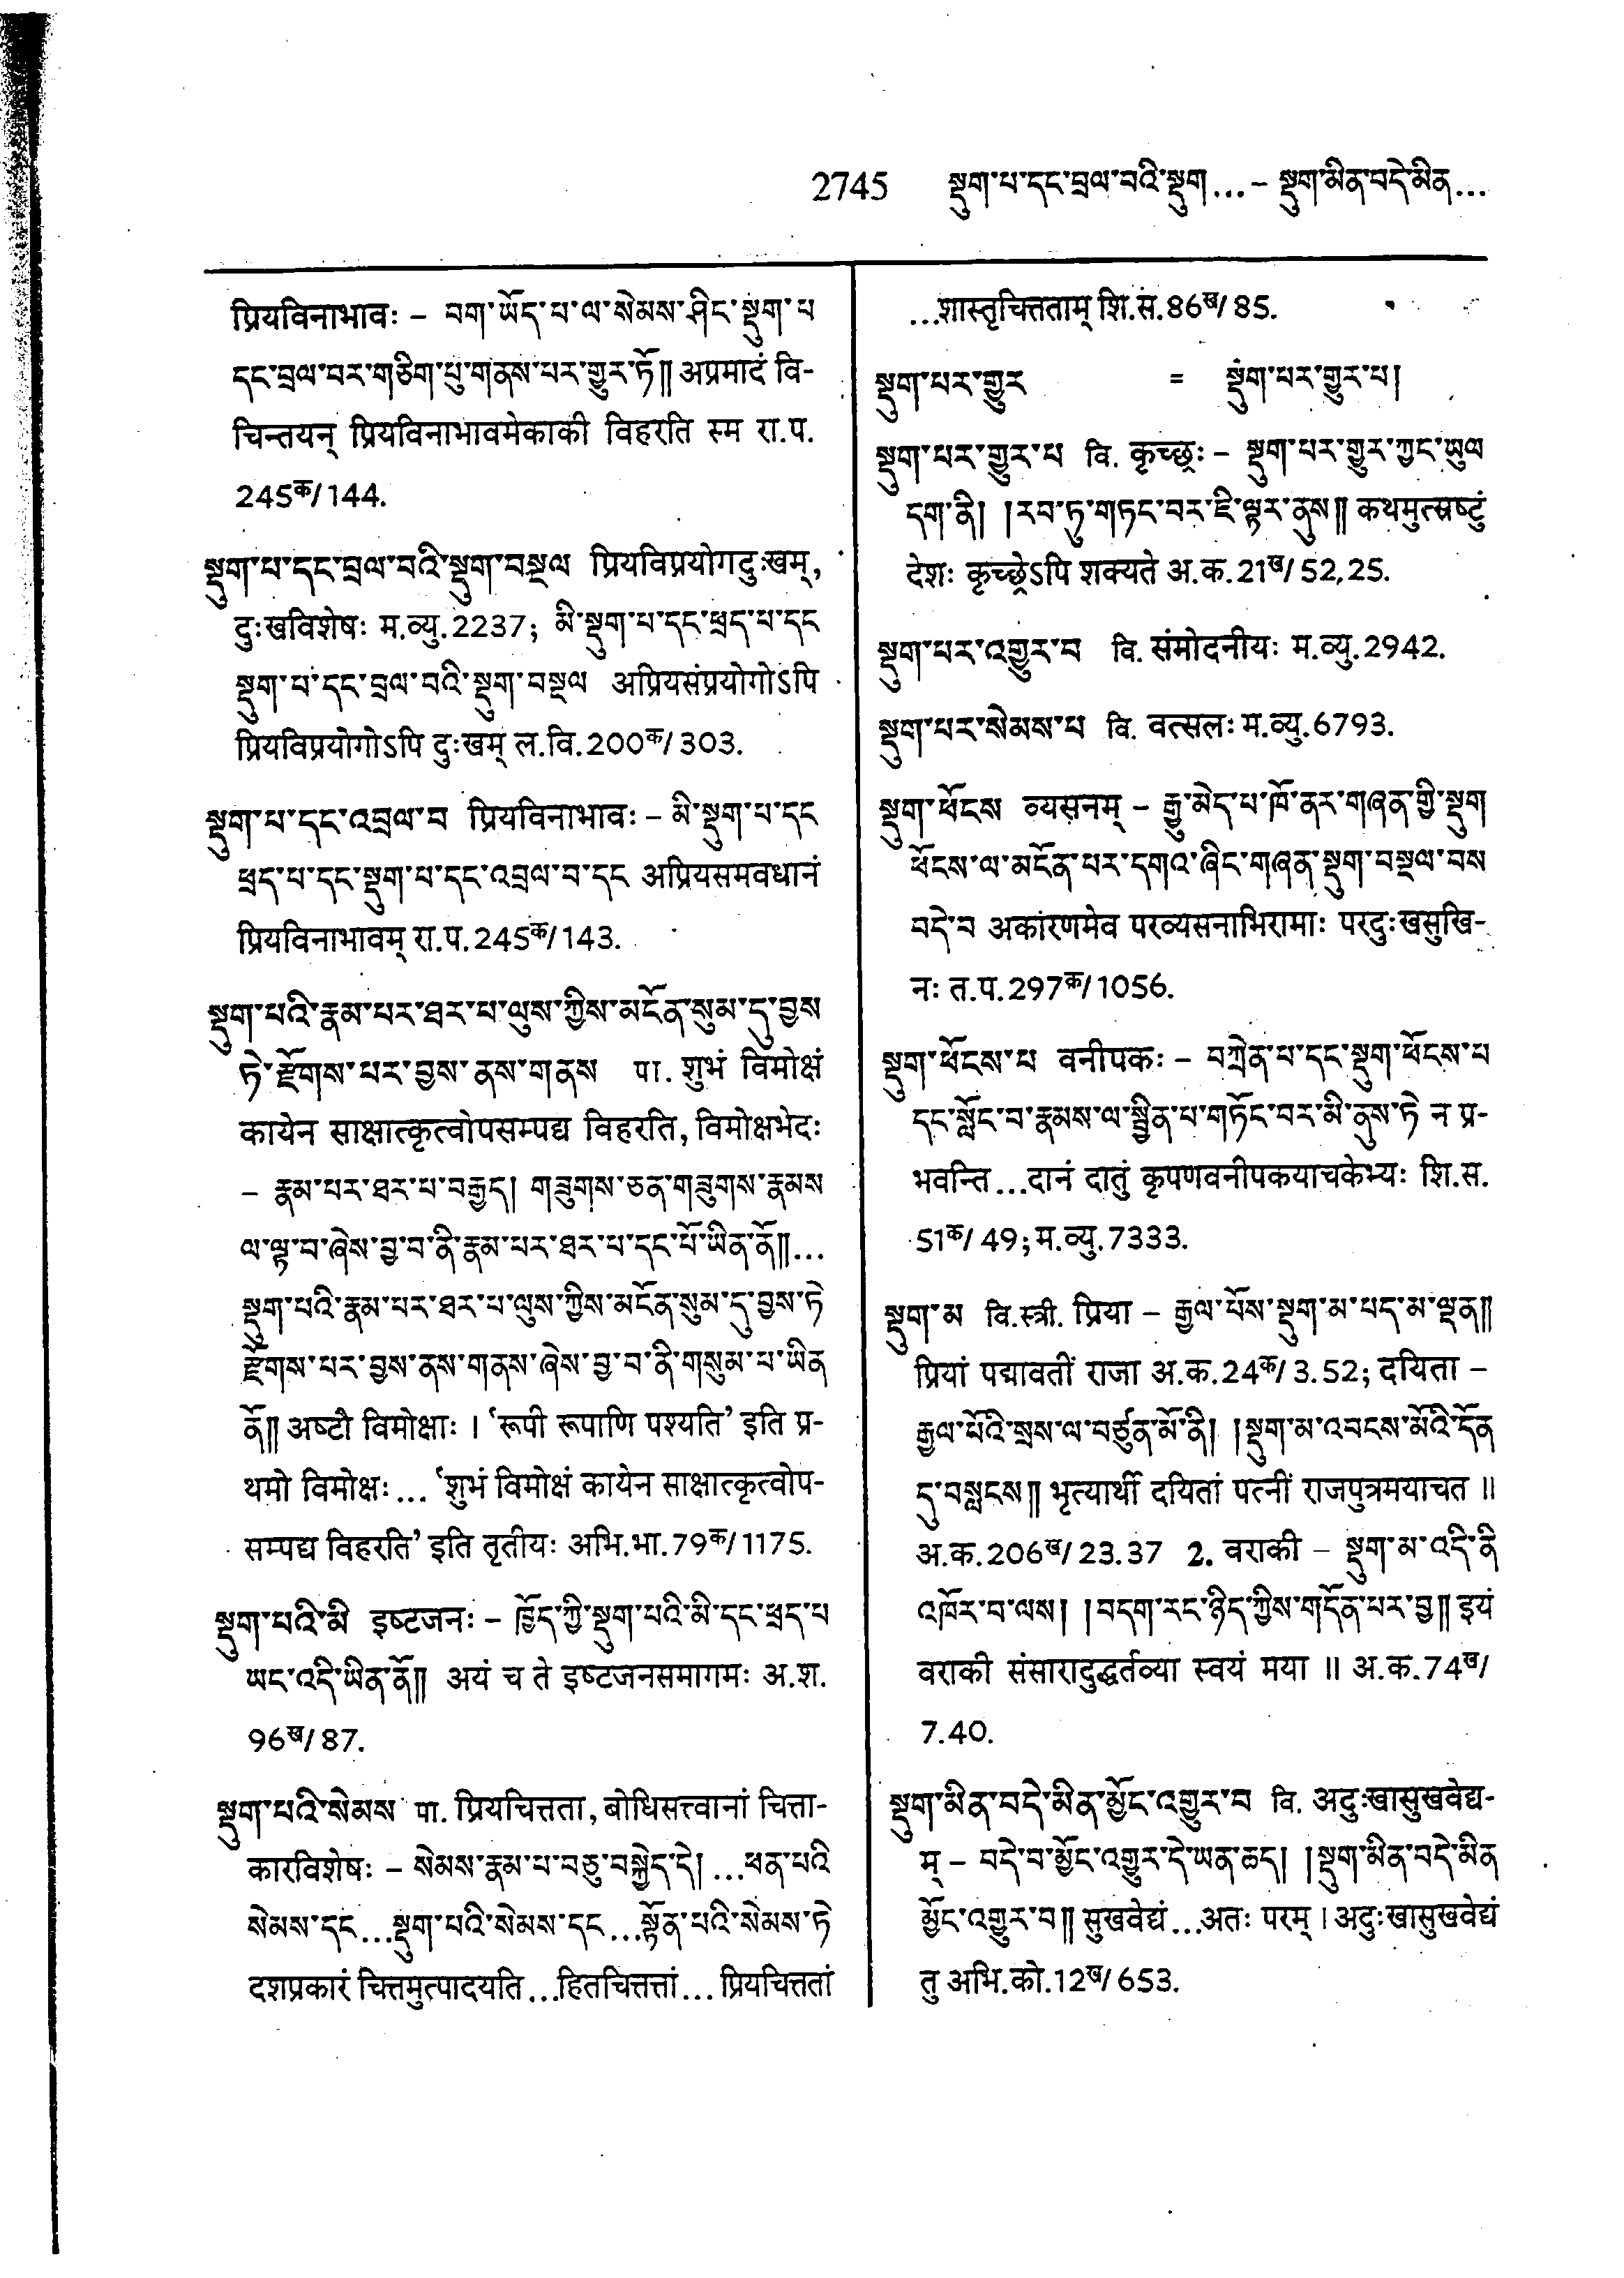 2745 སྡུག་པ་དང་བྲལ་བའི་སྡུག...– སྡུག་མིན་བདེ་མིན...
प्रियविनाभावः – བག་ཡོད་པ་ལ་སེམས་ཤིང་སྡུག་པ
དང་བྲལ་བར་གཅིག་པུ་གནས་པར་གྱུར་ཏོ༎ अप्रमादं वि-
चिन्तयन् प्रियविनाभावमेकाकी विहरति स्म रा.प.
245क/144.
སྡུག་པ་དང་བྲལ་བའི་སྡུག་བསྔལ प्रियविप्रयोगदुःखम्,
दुःखविशेषः म.व्यु.2237; མི་སྡུག་པ་དང་ཕྲད་པ་དང
སྡུག་པ་དང་བྲལ་བའི་སྡུག་བསྔལ अप्रियसंप्रयोगोऽपि
प्रियविप्रयोगोऽपि दुःखम् ल.वि.200क/303.
སྡུག་པ་དང་འབྲལ་བ प्रियविनाभावः – མི་སྡུག་པ་དང
ཕྲད་པ་དང་སྡུག་པ་དང་འབྲལ་བ་དང अप्रियसमवधानं
प्रियविनाभावम् रा.प.245क/143.
སྡུག་པའི་རྣམ་པར་ཐར་པ་ལུས་ཀྱིས་མངོན་སུམ་དུ་བྱས
ཏེ་རྫོགས་པར་བྱས་ནས་གནས पा. शुभं विमोक्षं
कायेन साक्षात्कृत्वोपसम्पद्य विहरति, विमोक्षभेदः
– རྣམ་པར་ཐར་པ་བརྒྱད། གཟུགས་ཅན་གཟུགས་རྣམས
ལ་ལྟ་བ་ཞེས་བྱ་བ་ནི་རྣམ་པར་ཐར་པ་དང་པོ་ཡིན་ནོ༎...
སྡུག་པའི་རྣམ་པར་ཐར་པ་ལུས་ཀྱིས་མངོན་སུམ་དུ་བྱས་ཏེ
རྫོགས་པར་བྱས་ནས་གནས་ཞེས་བྱ་བ་ནི་གསུམ་པ་ཡིན
ནོ༎ अष्टौ विमोक्षाः । ‘रूपी रूपाणि पश्यति’ इति प्र-
थमो विमोक्षः... ‘शुभं विमोक्षं कायेन साक्षात्कृत्वोप-
सम्पद्य विहरति’ इति तृतीयः अभि.भा.79क/1175.
སྡུག་པའི་མི इष्टजनः – ཁྱོད་ཀྱི་སྡུག་པའི་མི་དང་ཕྲད་པ
ཡང་འདི་ཡིན་ནོ༎ अयं च ते इष्टजनसमागमः अ.श.
96ख/87.
སྡུག་པའི་སེམས पा. प्रियचित्तता, बोधिसत्त्वानां चित्ता-
कारविशेषः – སེམས་རྣམ་པ་བཅུ་བསྐྱེད་དེ། ...ཕན་པའི
སེམས་དང...སྡུག་པའི་སེམས་དང...སྟོན་པའི་སེམས་ཏེ
दशप्रकारं चित्तमुत्पादयति...हितचित्ततां... प्रियचित्ततां
...शास्तृचित्तताम् शि.स.86ख/85.
སྡུག་པར་གྱུར = སྡུག་པར་གྱུར་པ།
སྡུག་པར་གྱུར་པ वि. कृच्छ्रः – སྡུག་པར་གྱུར་ཀྱང་ཡུལ
དག་ནི། །རབ་ཏུ་གཏང་བར་ཇི་ལྟར་ནུས༎ कथमुत्स्रष्टुं
देशः कृच्छ्रेऽपि शक्यते अ.क.21ख/52.25.
སྡུག་པར་འགྱུར་བ वि. संमोदनीयः म.व्यु.2942.
སྡུག་པར་སེམས་པ वि. वत्सलः म.व्यु.6793.
སྡུག་ཕོངས व्यसनम् – རྒྱུ་མེད་པ་ཁོ་ནར་གཞན་གྱི་སྡུག
ཕོངས་ལ་མངོན་པར་དགའ་ཞིང་གཞན་སྡུག་བསྔལ་བས
བདེ་བ अकारणमेव परव्यसनाभिरामाः परदुःखसुखि-
नः त.प.297क/1056.
སྡུག་ཕོངས་པ वनीपकः – བཀྲེན་པ་དང་སྡུག་ཕོངས་པ
དང་སློང་བ་རྣམས་ལ་སྦྱིན་པ་གཏོང་བར་མི་ནུས་ཏེ न प्र-
भवन्ति...दानं दातुं कृपणवनीपकयाचकेभ्यः शि.स.
51क/49; म.व्यु.7333.
སྡུག་མ वि.स्त्री. प्रिया – རྒྱལ་པོས་སྡུག་མ་པད་མ་ལྡན༎
प्रियां पद्मावतीं राजा अ.क.24क/3.52; दयिता –
རྒྱལ་པོའི་སྲས་ལ་བཙུན་མོ་ནི། །སྡུག་མ་འབངས་མོའི་དོན
དུ་བསླངས༎ भृत्यार्थी दयितां पत्नीं राजपुत्रमयाचत ॥
अ.क.206ख/23.37 2. वराकी – སྡུག་མ་འདི་ནི
འཁོར་བ་ལས། །བདག་རང་ཉིད་ཀྱིས་གདོན་པར་བྱ༎ इयं
वराकी संसारादुद्धर्तव्या स्वयं मया ॥ अ.क.74ख/
7.40.
སྡུག་མིན་བདེ་མིན་མྱོང་འགྱུར་བ वि. अदुःखासुखवेद्य-
म् – བདེ་བ་མྱོང་འགྱུར་དེ་ཡན་ཆད། །སྡུག་མིན་བདེ་མིན
མྱོང་འགྱུར་བ༎ सुखवेद्यं...अतः परम् । अदुःखासुखवेद्यं
तु अभि.को.12ख/653.